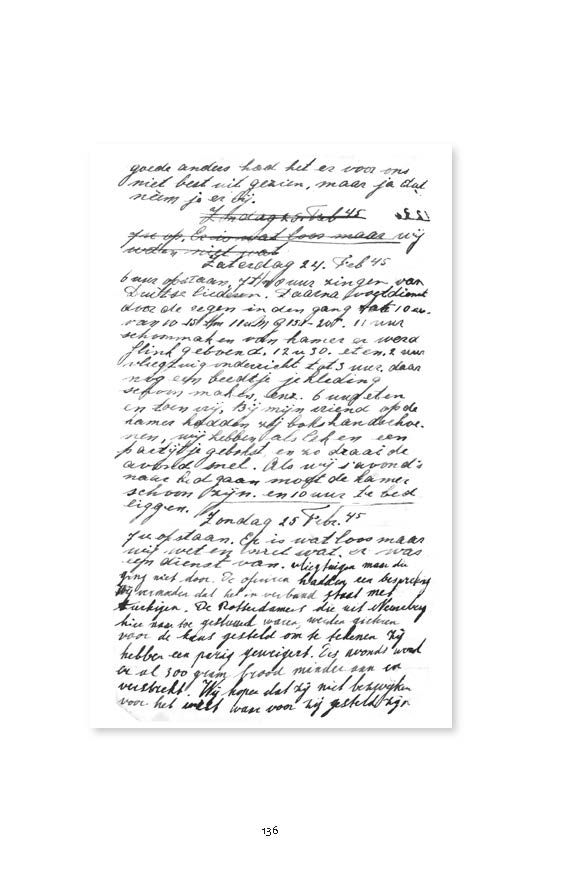 goede anders had het er voor ons
niet best uit gezien, maar ja dat
neem je er bij.
Zondag 25 Feb 45
7 u op. Er is wat loos maar wij
weten niet wat
Zaterdag 24. Feb 45
6 uur opstaan, 7 10 uur zingen van
Duitse liederen. Daarna
door de regen in den gang 10 u.
van 10 11 uur
schoonmaken van kamer er werd
flink geboend. 12 u 30. eten, 2 uur
vliegtuig onderricht tot 3 uur, daar
nog een beetje je kleding
schoon maken, enz. 6 uur eten
en toen vrij, Bij mijn vriend op de
kamer hadden zij bokshandschoe-
nen, wij hebben als lek en een
partijtje gebokst en zo draai de
avond snel. Als wij s'avonds
naar bed gaan moet de kamer
schoon zijn. en 10 uur te bed
liggen.
Zondag 25 Febr. 45
7 u opstaan. Er is wat loos maar
wij weten niet wat. er was
een dienst van vliegtuigen maar die
ging niet door. De officieren hadden een bespreking
Wij vermoeden dat het in verband staat met
Turkijen. De Rotterdamers die uit
hier naar toe gestuurd waren, werden gisteren
voor de kans gesteld om te tekenen zij
hebben een parig geweigert. Des avonds word
er al 300 gram brood minder aan
verstrekt. Wij hopen dat zij niet bezwijken
voor het waar voor zij gesteld zijn
136